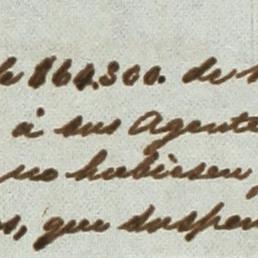 de $64.300. de
á sus Agente
no hubiesen
s, que suspen